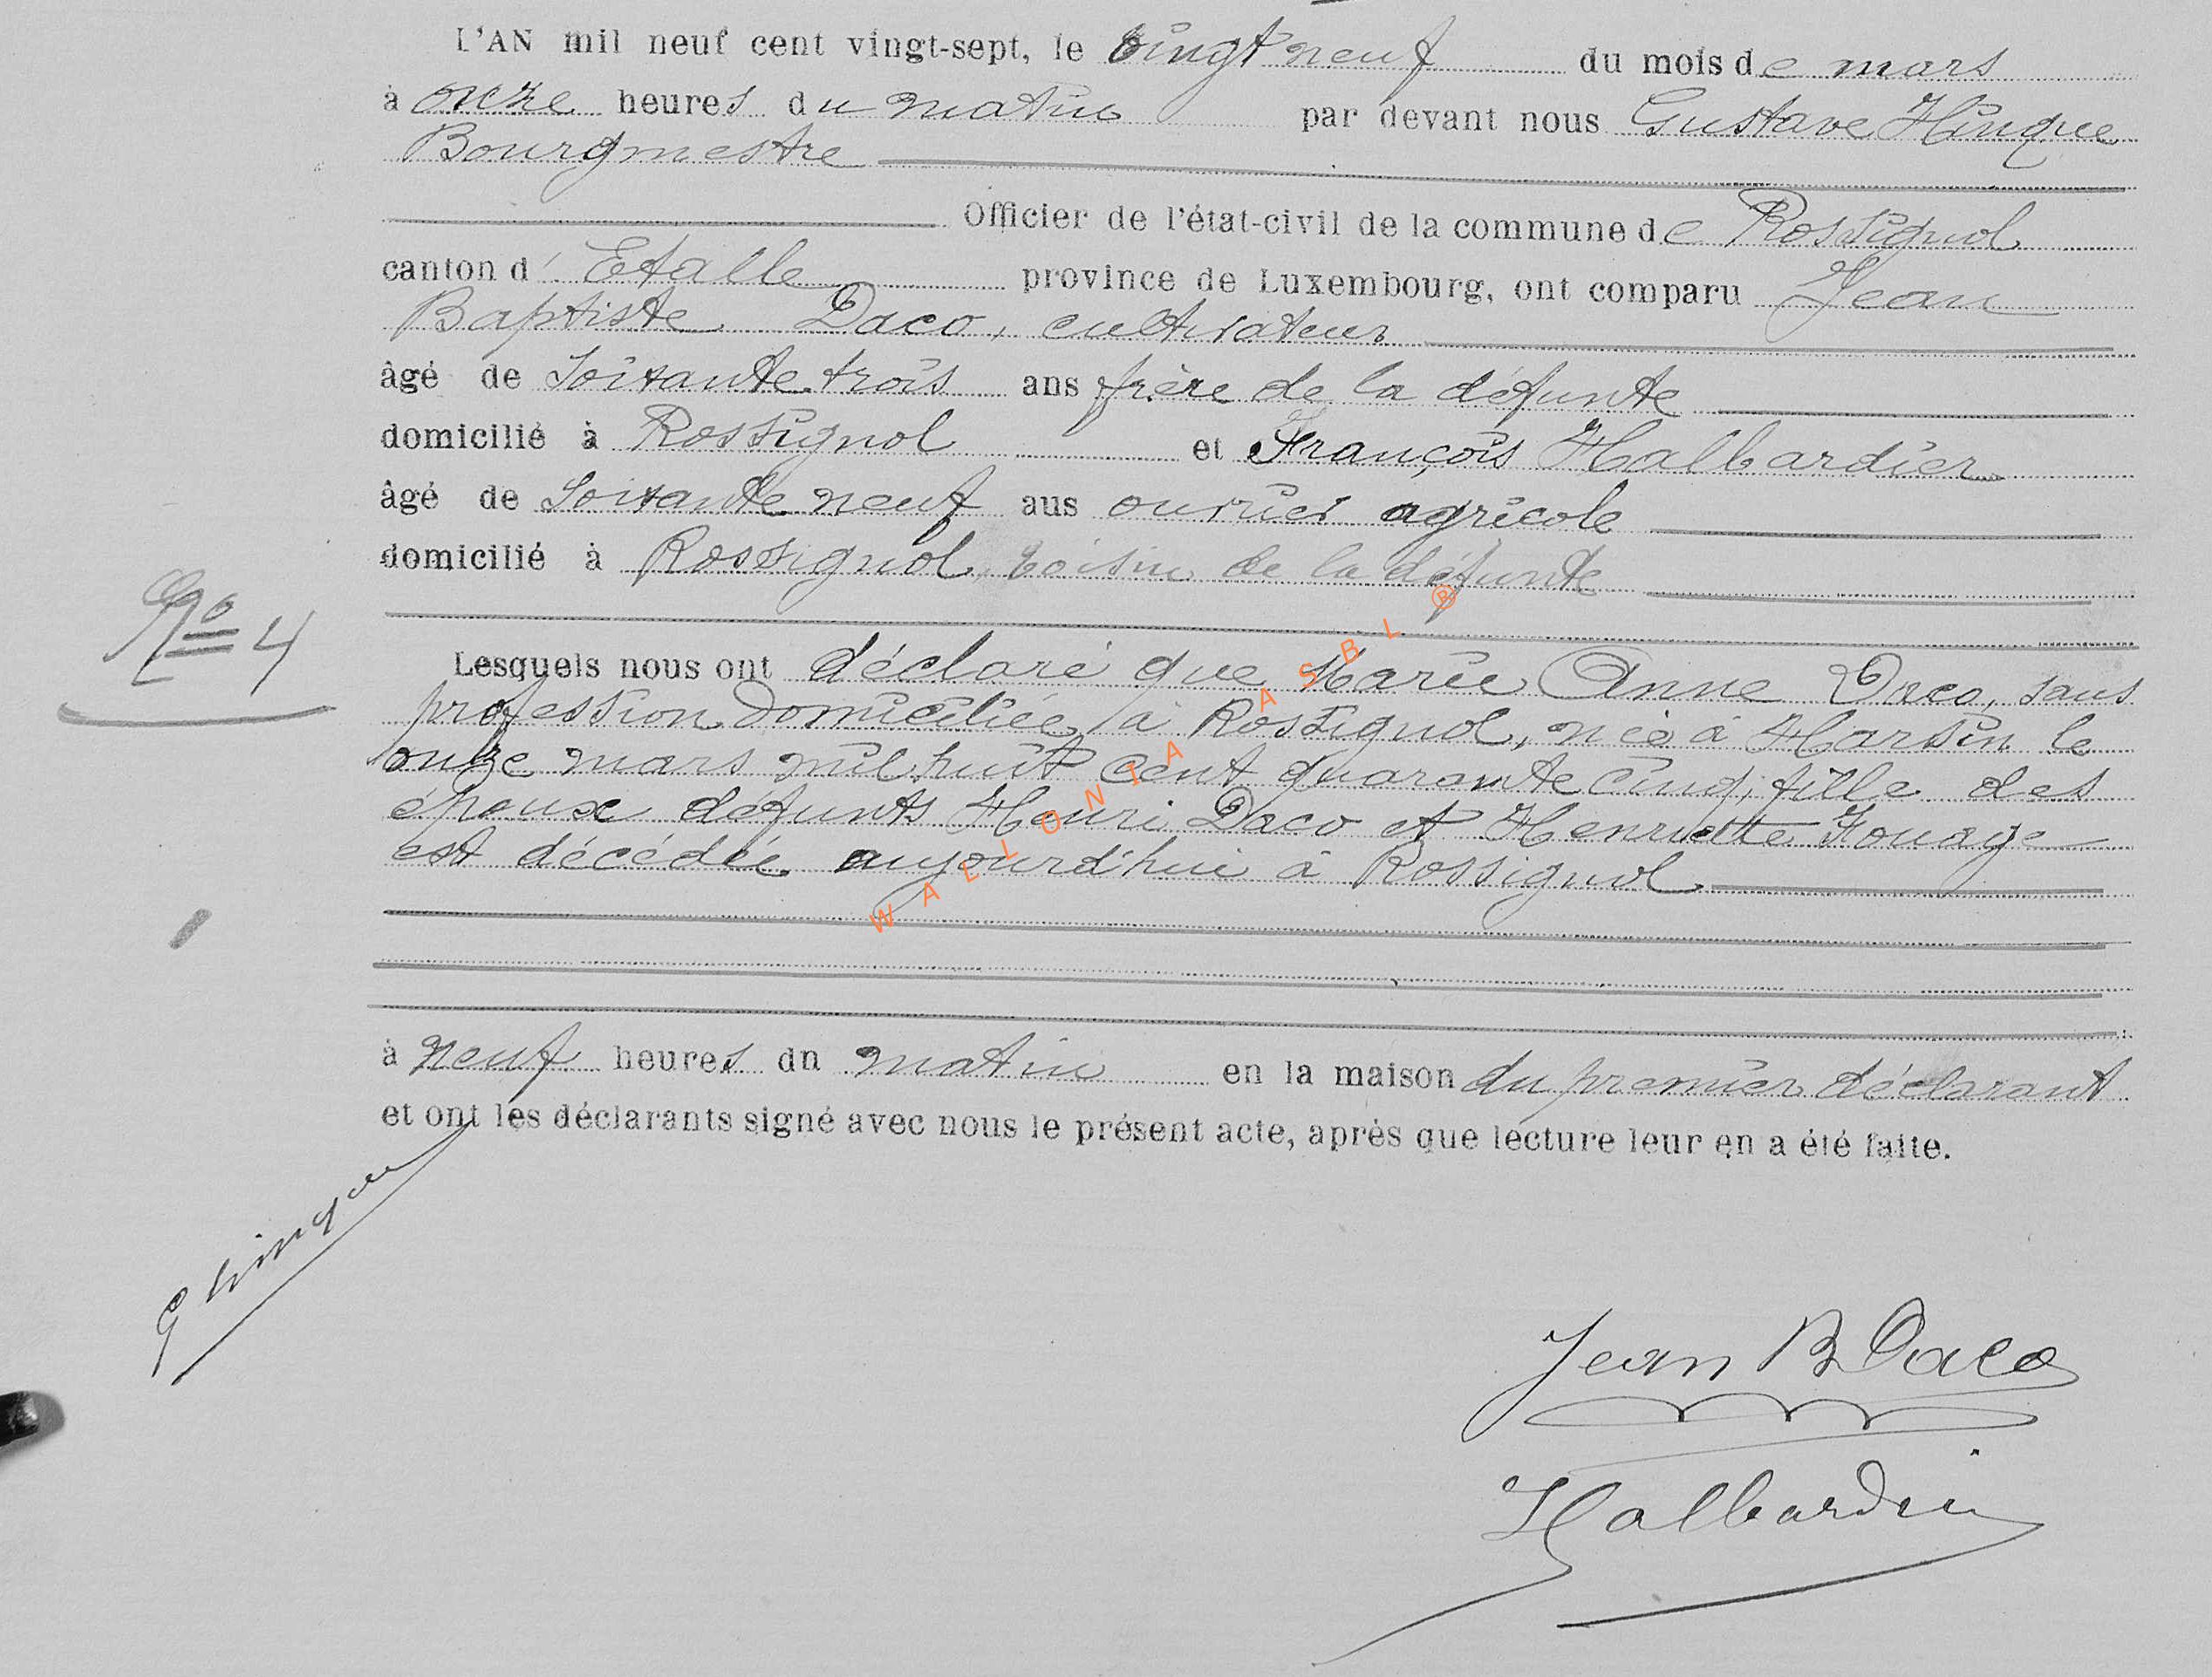 L'AN mil neuf cent vingt-sept, le vingt neuf du mois de mars
à onze heures du matin par devant nous Gustave Hinque
Bourgmestre
Officier de l'état-civil de la commune de Rossignol
canton d'Etalle province de Luxembourg, ont comparu Jean
Baptiste Daco, cultivateur
âgé de soixante trois ans frère de la défunte
domicilié à Rossignol et François Halbardier
âgé de soixante neuf aus ouvrier agricole
domicilié à Rossignol, voisin de la défunte
No 4
Lesquels nous ont déclaré que Marie Anne Daco, sans
profession domiciliée à Rossignol, née à Harsin le
onze mars mil huit cent quarante cinq, fille des
époux défunts Henri Daco et Henriette Fouage
est décédée aujourd'hui à Rossignol
WALLONIA ASBL ®
à neuf heures dn matin en la maison du premier déclarant
et ont les déclarants signé avec nous le présent acte, après que lecture leur en a été faite.
G Hinque
Jean B Daco
Halbardier